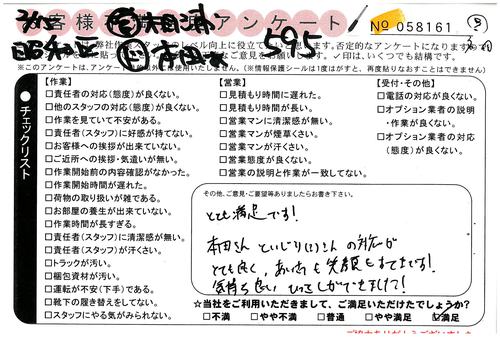 お客様 アンケート
No 058161
595
※このアンケートは、アンケート以外に使用いたしません。(※情報保護シールは1度はがすと、再度貼りなおすことはできません)
チェックリスト
【作業】
□責任者の対応(態度)が良くない。
□他のスタッフの対応(態度)が良くない。
□作業を見ていて不安がある。
□責任者(スタッフ)に好感が持てない。
□お客様への挨拶が出来ていない。
□ご近所への挨拶・気遣いが無い。
□作業開始前の内容確認がなかった。
□作業開始時間が遅れた。
□荷物の取り扱いが雑である。
□お部屋の養生が出来ていない。
□作業時間が長すぎる。
□責任者(スタッフ)に清潔感が無い。
□責任者(スタッフ)が汗くさい。
□トラックが汚い。
□梱包資材が汚い。
□運転が不安(下手)である。
□靴下の履き替えをしてない。
□スタッフにやる気がみられない。
【営業】
□見積もり時間に遅れた。
□見積もり時間が長い。
□営業マンに清潔感が無い。
□営業マンが煙草くさい。
□営業マンが汗くさい。
□営業態度が良くない。
□営業の説明と作業が一致してない。
【受付・その他】
□電話の対応が良くない。
□オプション業者の説明
・作業が良くない。
□オプション業者の対応
(態度)が良くない。
その他、ご意見・ご要望等ありましたらお書き下さい。
とても満足です!
本田さん といじりにさん の対応が
とても良く、あいさつも笑顔もすてきです!
気持ち良い ひっこしができました!
☆当社をご利用いただきまして、ご満足いただけたでしょうか?
□不満 □やや不満 □普通 □やや満足 ☑満足
ご協力ありがとうございました